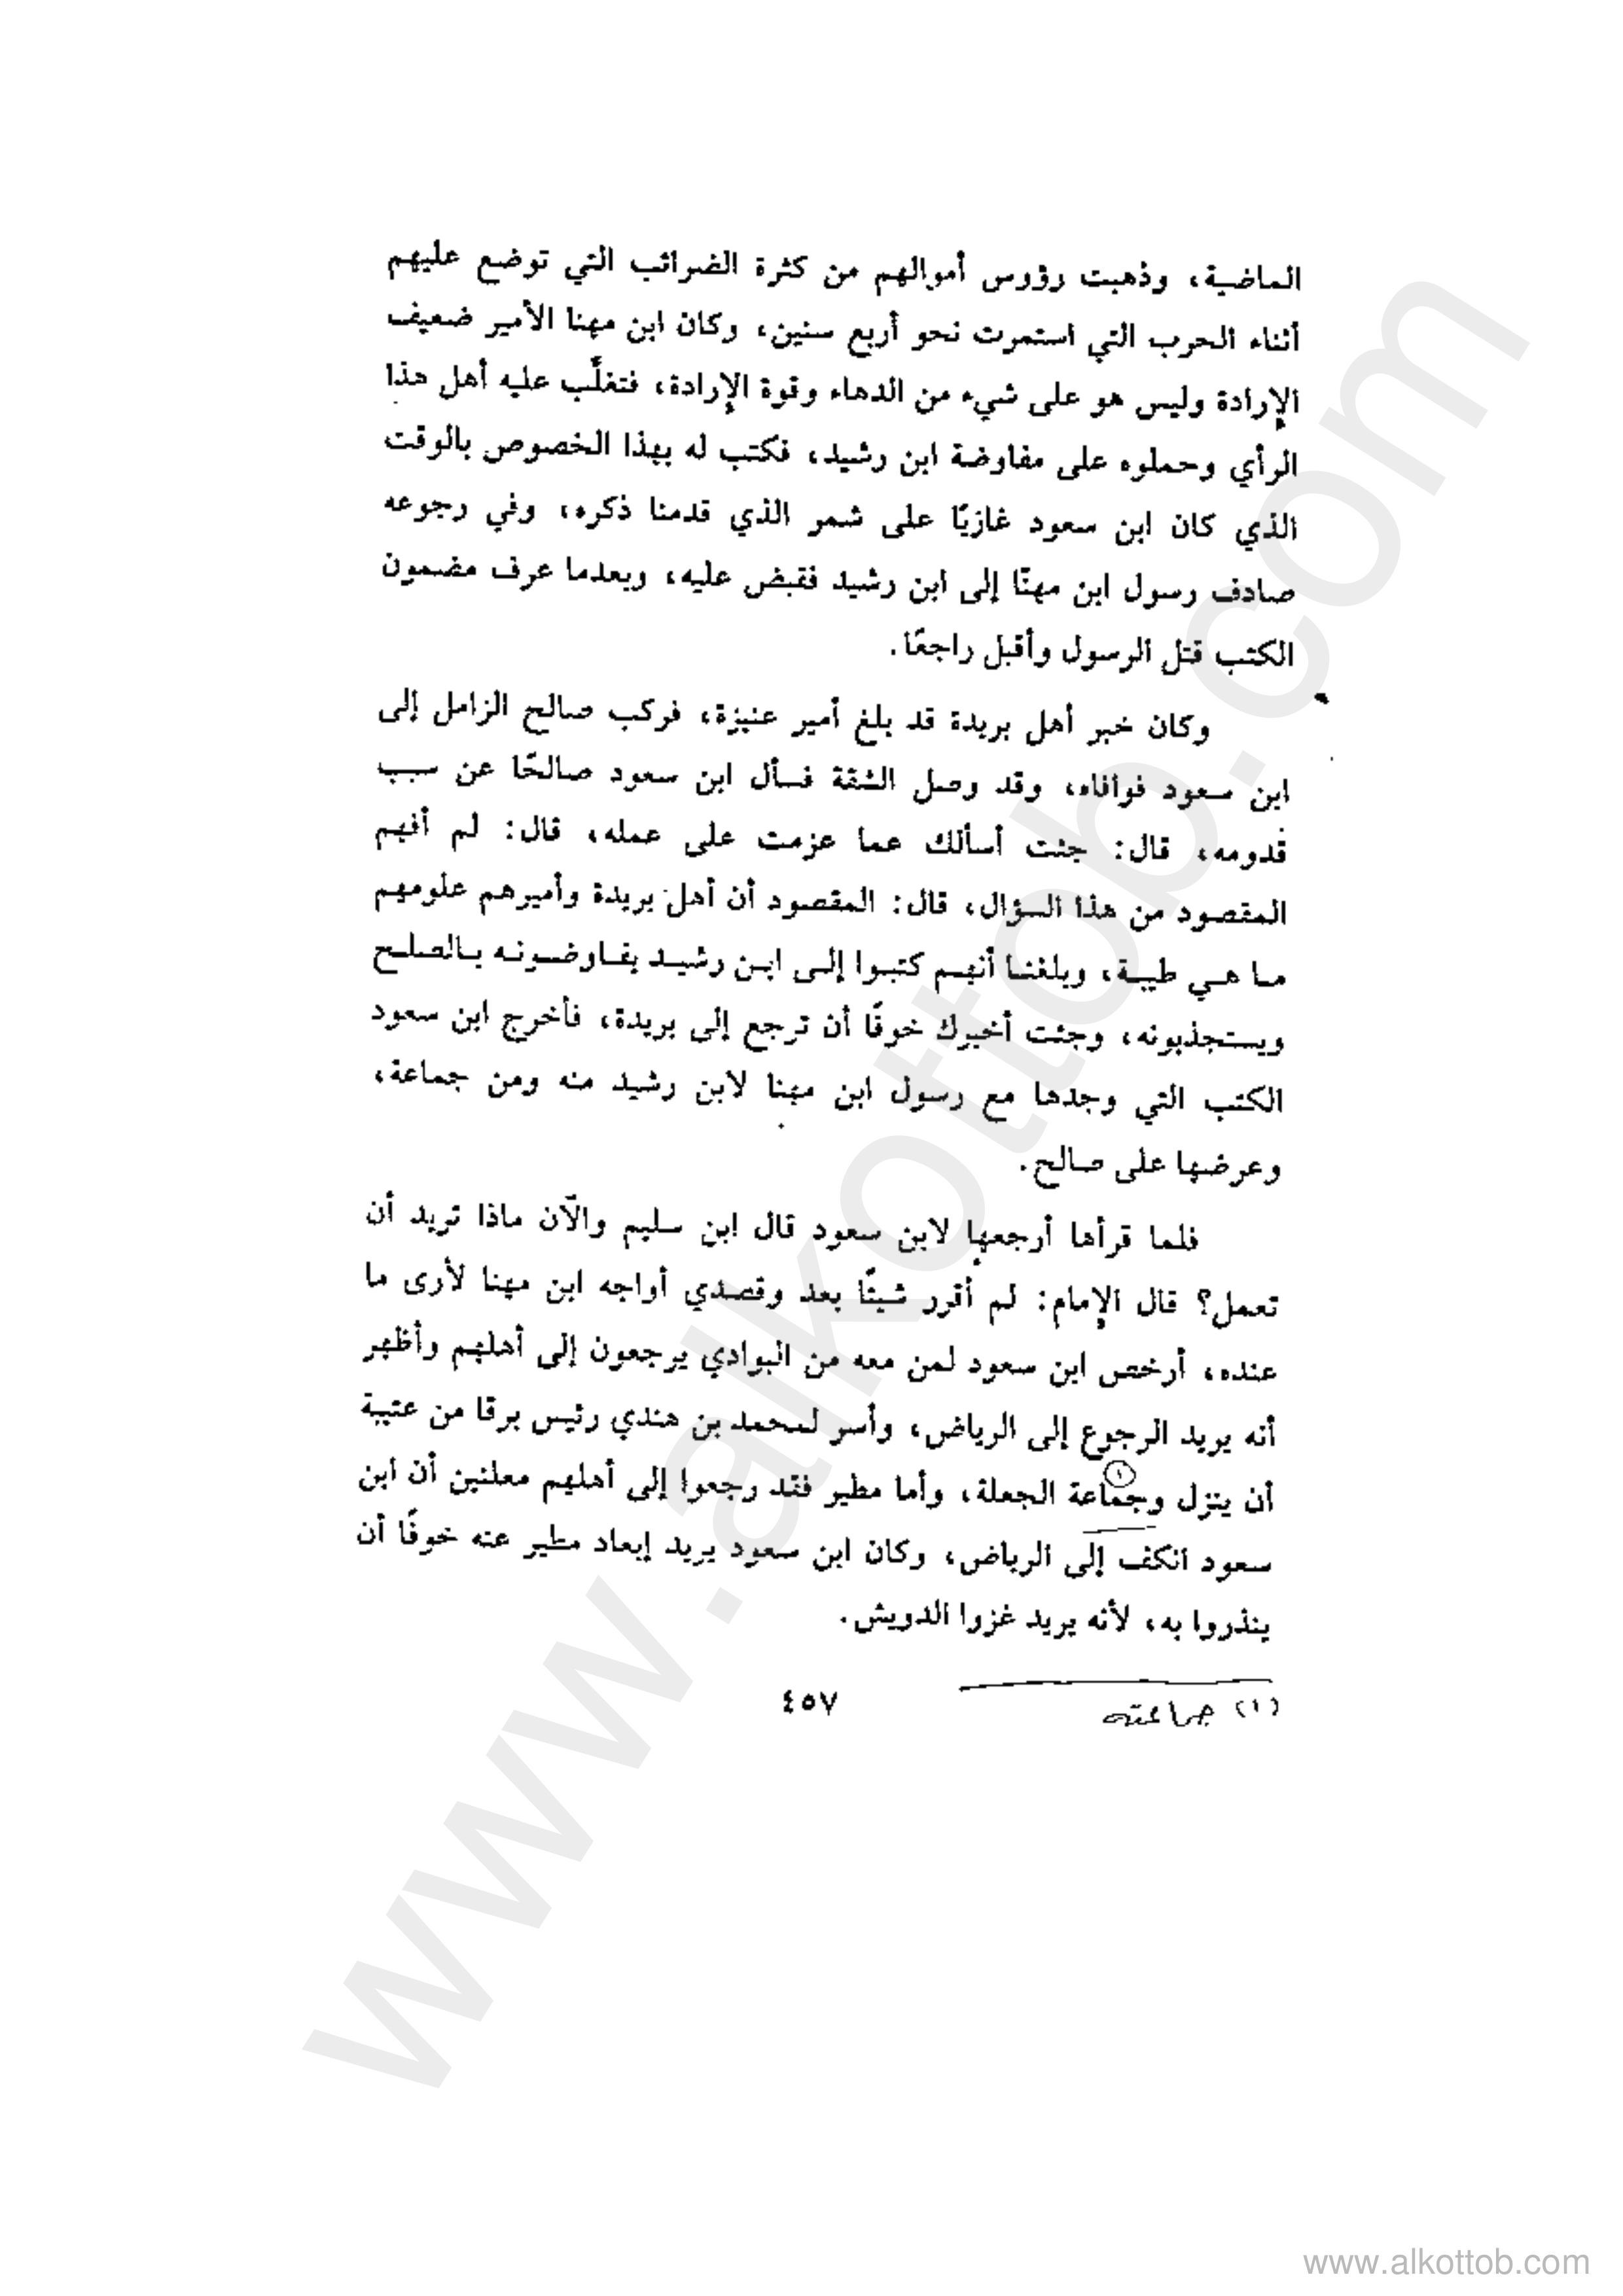 الماضية، وذهبت رؤوس أموالهم من كثرة الضرائب التي توضع عليهم
أثناء الحرب التي استمرت نحو أربع سنين، وكان ابن مهنا الأمير ضعيف
الإرادة وليس هو على شيء من الدهاء وقوة الإرادة، فتغلَّب عليه أهل هذا
الرأي وحملوه على مفاوضة ابن رشيد، فكتب له بهذا الخصوص بالوقت
الذي كان ابن سعود غازيًا على شمر الذي قدمنا ذكره، وفي رجوعه
صادف رسول ابن مهنّا إلى ابن رشيد فقبض عليه، وبعدما عرف مضمون
الكتب قتل الرسول وأقبل راجعًا.
وكان خبر أهل بريدة قد بلغ أمير عنيزة، فركب صالح الزامل إلى
ابن سعود فوافاه، وقد وصل الشقة فسأل ابن سعود صالحًا عن سبب
قدومه، قال: جئت أسألك عما عزمت على عمله، قال: لم أفهم
المقصود من هذا السؤال، قال: المقصود أن أهل بريدة وأميرهم علومهم
ما هي طيبة، وبلغنا أنهم كتبوا إلى ابن رشيد يفاوضونه بالصلح
ويستجذبونه، وجئت أخبرك خوفًا أن ترجع إلى بريدة، فأخرج ابن سعود
الكتب التي وجدها مع رسول ابن مهنا لابن رشيد منه ومن جماعة،
وعرضها على صالح.
فلما قرأها أرجعها لابن سعود قال ابن سليم والآن ماذا تريد أن
تعمل؟ قال الإمام: لم أقرر شيئًا بعد وقصدي أواجه ابن مهنا لأرى ما
عنده، أرخص ابن سعود لمن معه من البوادي يرجعون إلى أهلهم وأظهر
أنه يريد الرجوع إلى الرياض، وأسر لمحمد بن هندي رئيس برقا من عتيبة
أن ينزل وجماعة(١) الجعلة، وأما مطير فقد رجعوا إلى أهلهم معلنين أن ابن
سعود انكف إلى الرياض، وكان ابن سعود يريد إبعاد مطير عنه خوفًا أن
ينذروا به، لأنه يريد غزوا الدويش.
(١) جماعته
٤٥٧
www.alkottob.com
www.alkottob.com